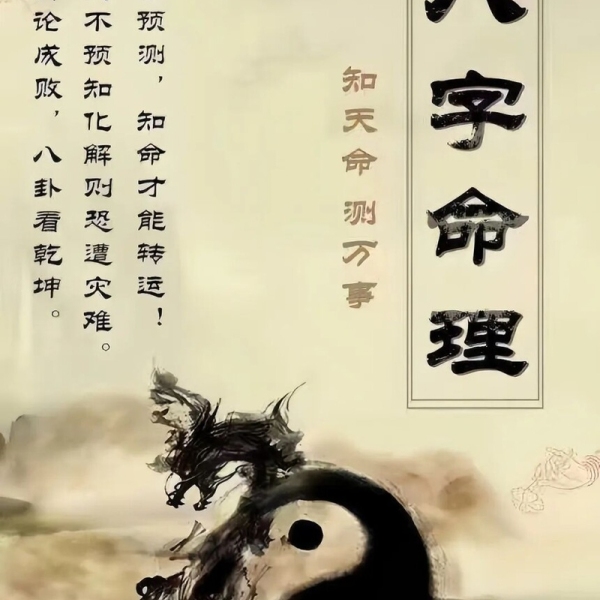 八字命理
知天命测万事
预测，知命才能转运！
不预知化解则恐遭灾难。
论成败，八卦看乾坤。